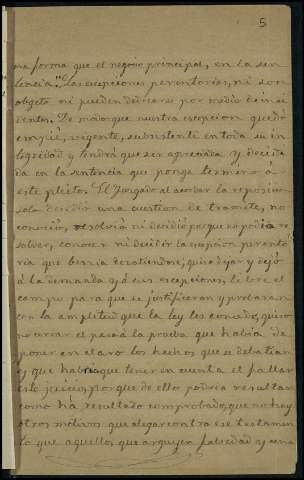 5
ma forma que el negocio principal, en la sen
tencia". Las escepciones perentorias, ni son
objeto ni pueden deducirse por medio de inci
dentes. De modo que nuestra escepcion quedó
en pié, vigente, subsistente en toda su in
tegridad y tendrá que ser apreciada y decidi
da en la sentencia que ponga termino á
este pleito. El Juzgado al acordar la reposicion
solo decidir una cuestion de tramite, no
conoció, resolvió ni decidió porque no podia re
solver, conocer ni decidir la escepcion perento
ria que besria quiso dejar y dejó
á la demanda y á sus escepciones, libre el
campo para que se justificaran y probaran
con la amplitud que la ley les concede, quiso
no cerrar el paso á la prueba que habia de
poner en claro los hechos que se debatian
y que habria que tener en cuenta al fallar
este juicio, porque de ello podria resultar
como há resultado comprobado, que no hay
otros motivos que alegar contra ese testamen
to que aquellos que arguyen falsedad y una